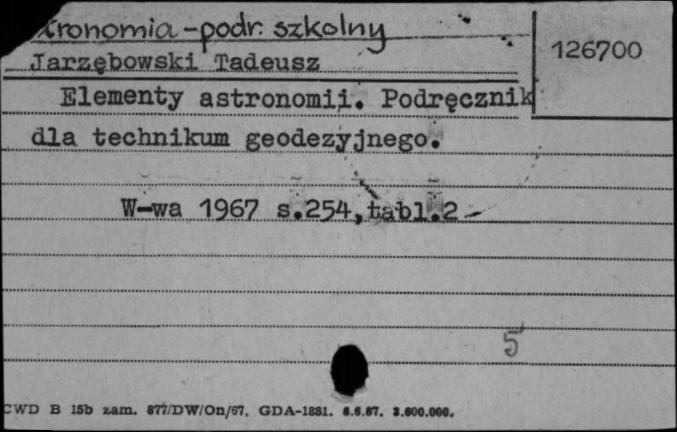 tronomia - podr. szkolny
126700
Jarzębowski Tadeusz
Elementy astronomii. Podręcznik
dla technikum geodezyjnego.
W-wa 1967 s.254, tabl.2
5
CWD B 15b zam. 877/DW/On/67. GDA-1881. 6.6.67. 3.600.000.